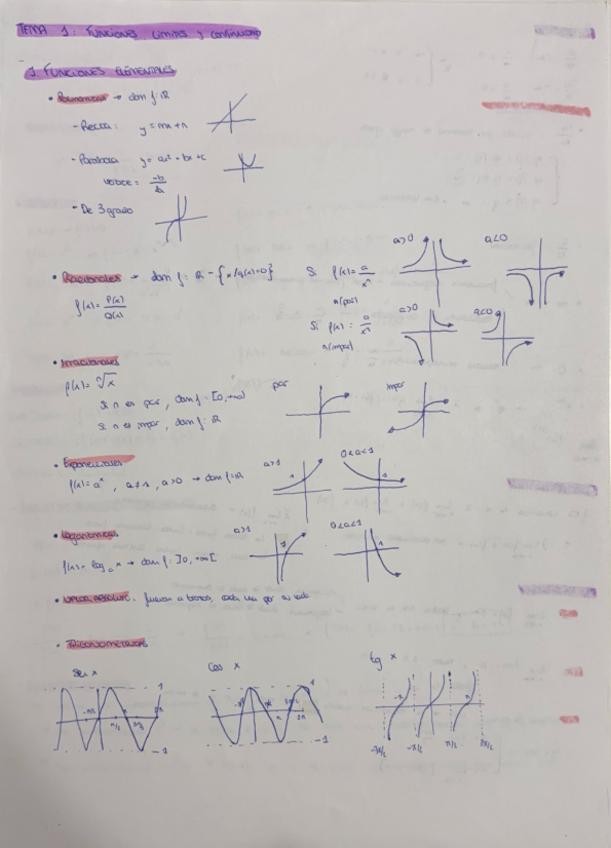 TEMA 1: FUNCIONES, LIMITES y CONTINUIDAD
1. FUNCIONES ELEMENTALES
• Polinómicas → dom f: ℝ
- Recta: y = mx + n
- Parábola y = ax² + bx + c
vértice = -b/2a
- De 3 grado
• Racionales → dom f: ℝ - {x/q(x)=0}
f(x) = P(x)/Q(x)
Si f(x) = a/xⁿ a>0 a<0
n(par)
Si f(x) = a/xⁿ a>0 a<0
n(impar)
• Irracionales
f(x) = ⁿ√x par impar
Si n es par, dom f: [0,+∞)
Si n es impar, dom f: ℝ
• Exponenciales
f(x) = aˣ, a≠1, a>0 → dom f=ℝ a>1 0<a<1
1 1
• Logarítmicas
f(x) = logₐ x → dom f: ]0, +∞[ a>1 0<a<1
1 1
• Valor absoluto: función a trozos, cada una por su lado
• Trigonométricas
Sen x Cos x tg x
1 1
π/2 π 3π/2 2π
-1 -1
-3π/2 -π/2 π/2 3π/2